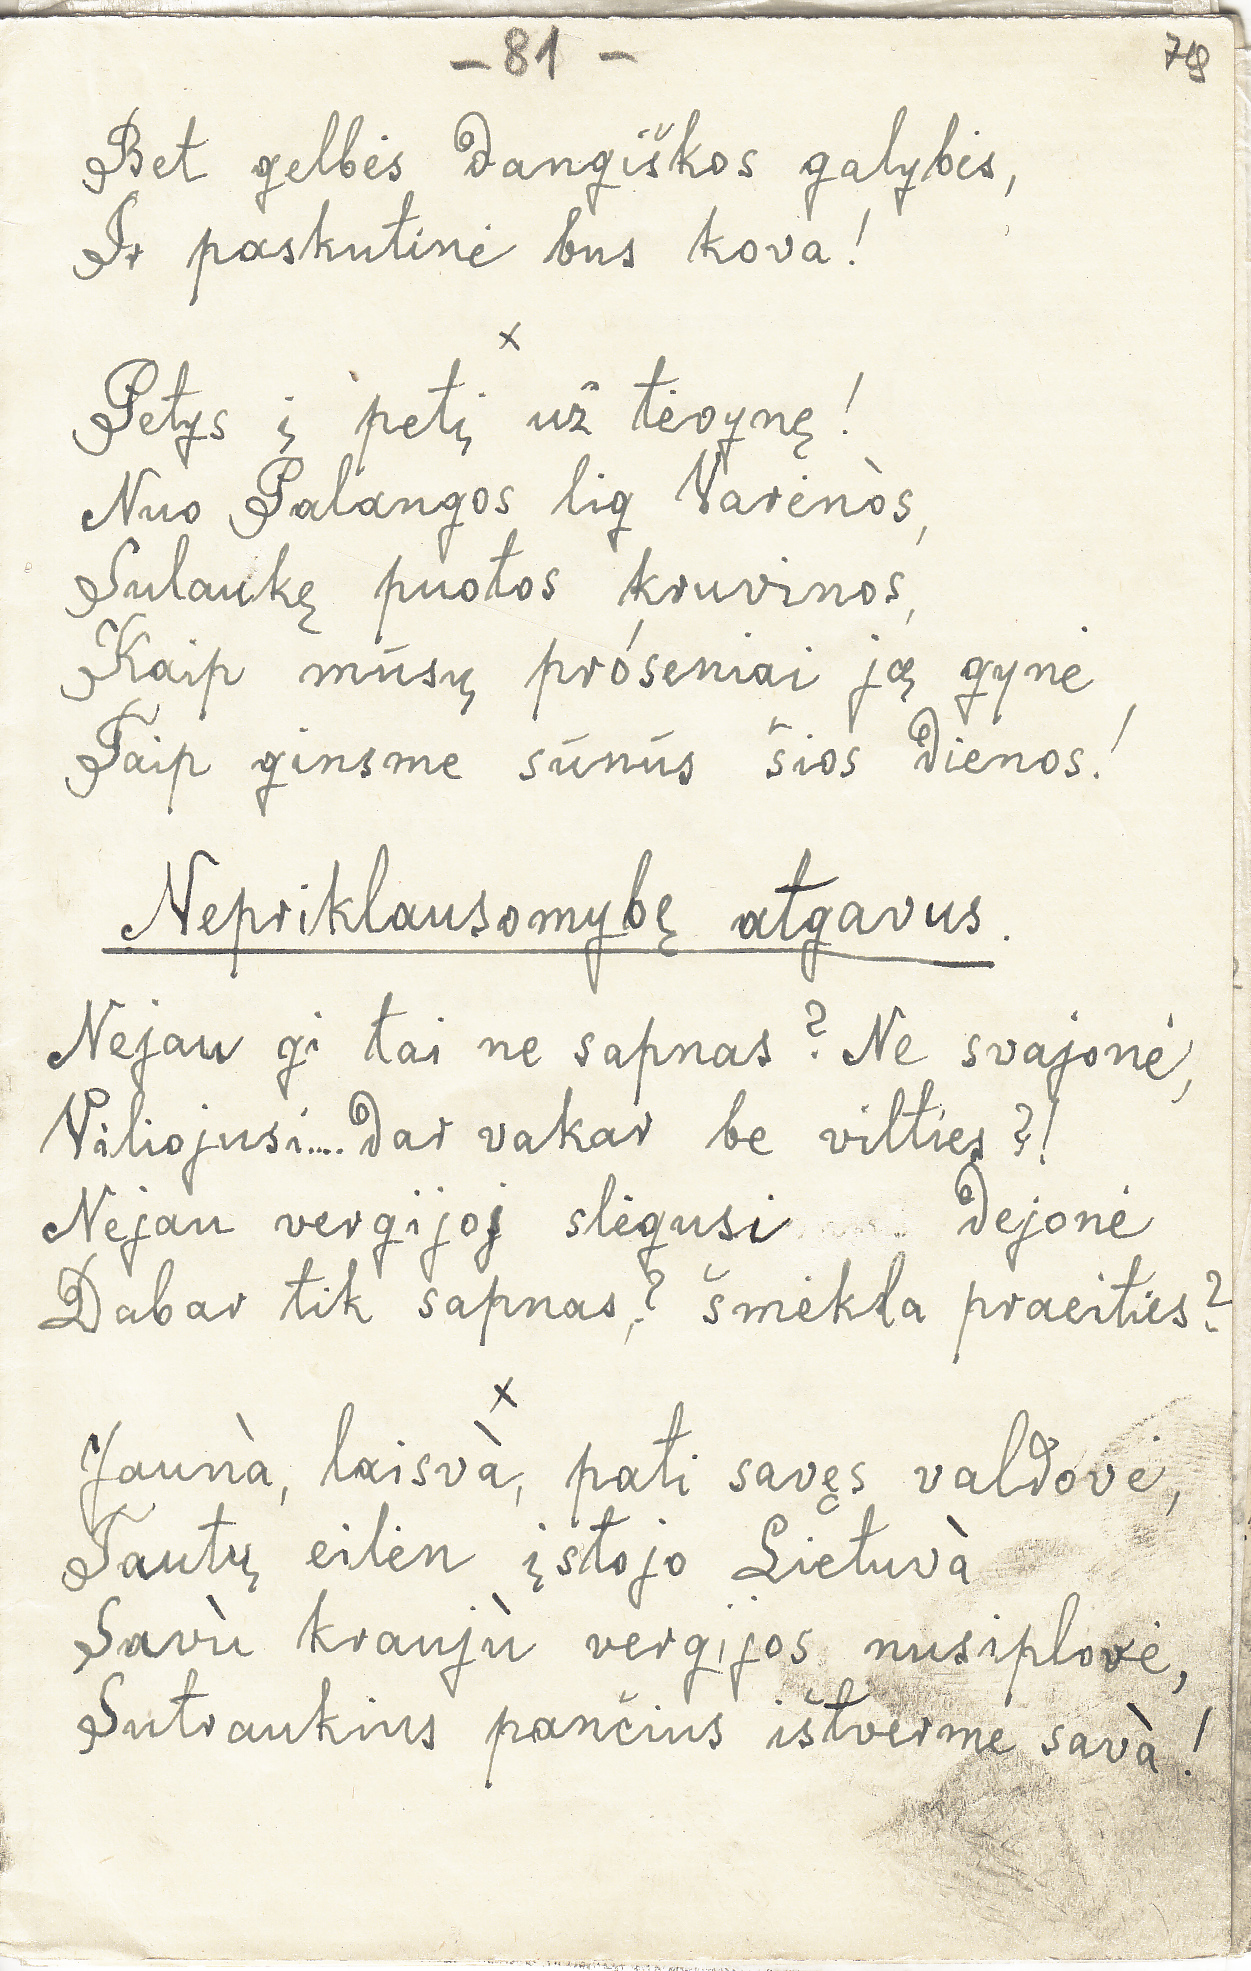 – 81 –
Bet gelbės dangiškos galybės,
Ir paskutinė bus kova!
x
Petys į petį už tėvynę!
Nuo Palangos lig Varėnòs,
Sulaukę puotos kruvinos,
Kaip mūsų próseniai ją gynė,
Taip ginsme sūnūs šios dienos!
Nepriklausomybę atgavus.
Nejau gi tai ne sapnas? Ne svajonė,
Viliojusi.... dar vakar be vilties?!
Nejau vergijoj slėgusi dejonė
Dabar tik sapnas,? šmėkla praeities?
x
Jaunà, laisvà, pati savęs valdovė,
Tautų eilėn įstojo Lietuvà
Savù kraujù vergijos nusiplovė,
Sutraukius pančius ištverme savà!